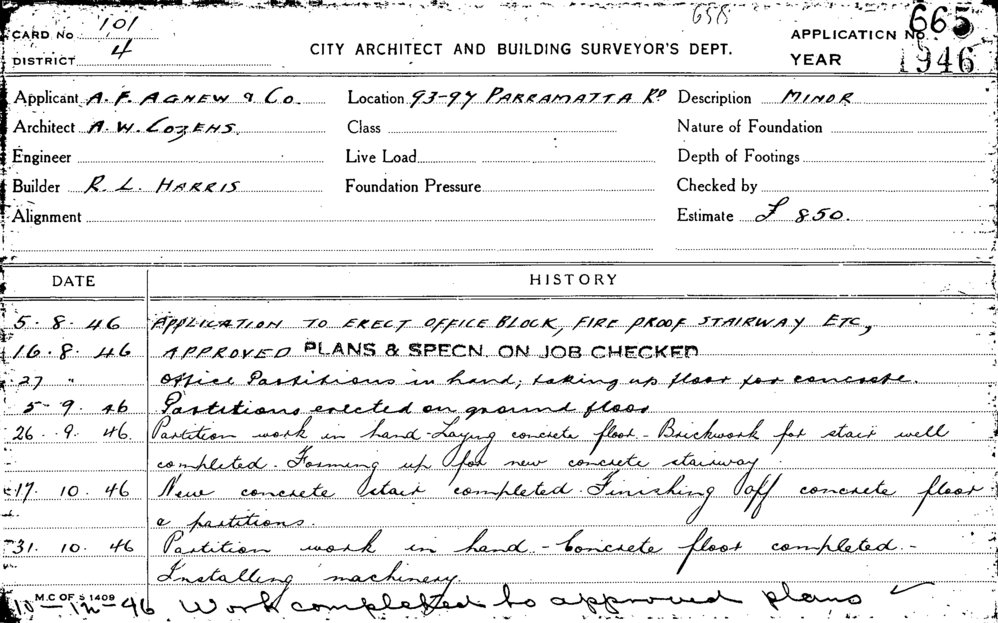 658
CARD No 101 APPLICATION No 665
DISTRICT 4 CITY ARCHITECT AND BUILDING SURVEYOR'S DEPT. YEAR 1946
Applicant A. F. AGNEW & Co. Location 93-97 PARRAMATTA RD Description MINOR
Architect A. W. COZENS. Class Nature of Foundation
Engineer Live Load Depth of Footings
Builder R. L. HARRIS Foundation Pressure Checked by
Alignment Estimate £ 850.
DATE HISTORY
5. 8. 46 APPLICATION TO ERECT OFFICE BLOCK, FIRE PROOF STAIRWAY ETC,
16. 8. 46 APPROVED PLANS & SPECN. ON JOB CHECKED
27 " Office Partitions in hand; taking up floor for concrete.
5-9. 46 Partitions erected on ground floor
26. 9. 46. Partition work in hand - Laying concrete floor - Brickwork for stair well
completed. Forming up for new concrete stairway
17. 10. 46 New concrete stair completed. Finishing off concrete floor
& partitions.
31. 10. 46 Partition work in hand. - Concrete floor completed. -
Installing machinery.
M.C OF S 1409
10-12-46 Work completed to approved plans ✓